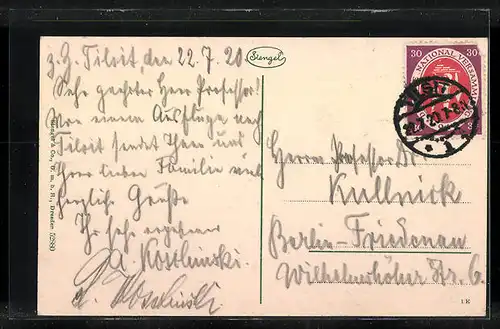 z. Z. Tilsit, den 22.7.20
Sehr geehrter Herr Professor!
Von einem Ausfluge nach
Tilsit sendet Ihnen und
Ihrer lieben Familie viele
herzliche Grüße
Ihr sehr ergebener
A. Kosslinski.
Stengel
Stengel & Co., G. m. b. H., Dresden
30 30
NATIONAL VERSAMML
TILSIT
Herrn Professor Dr.
Kullnick
Berlin-Friedenau
Wilhelmshöher Str. 6.